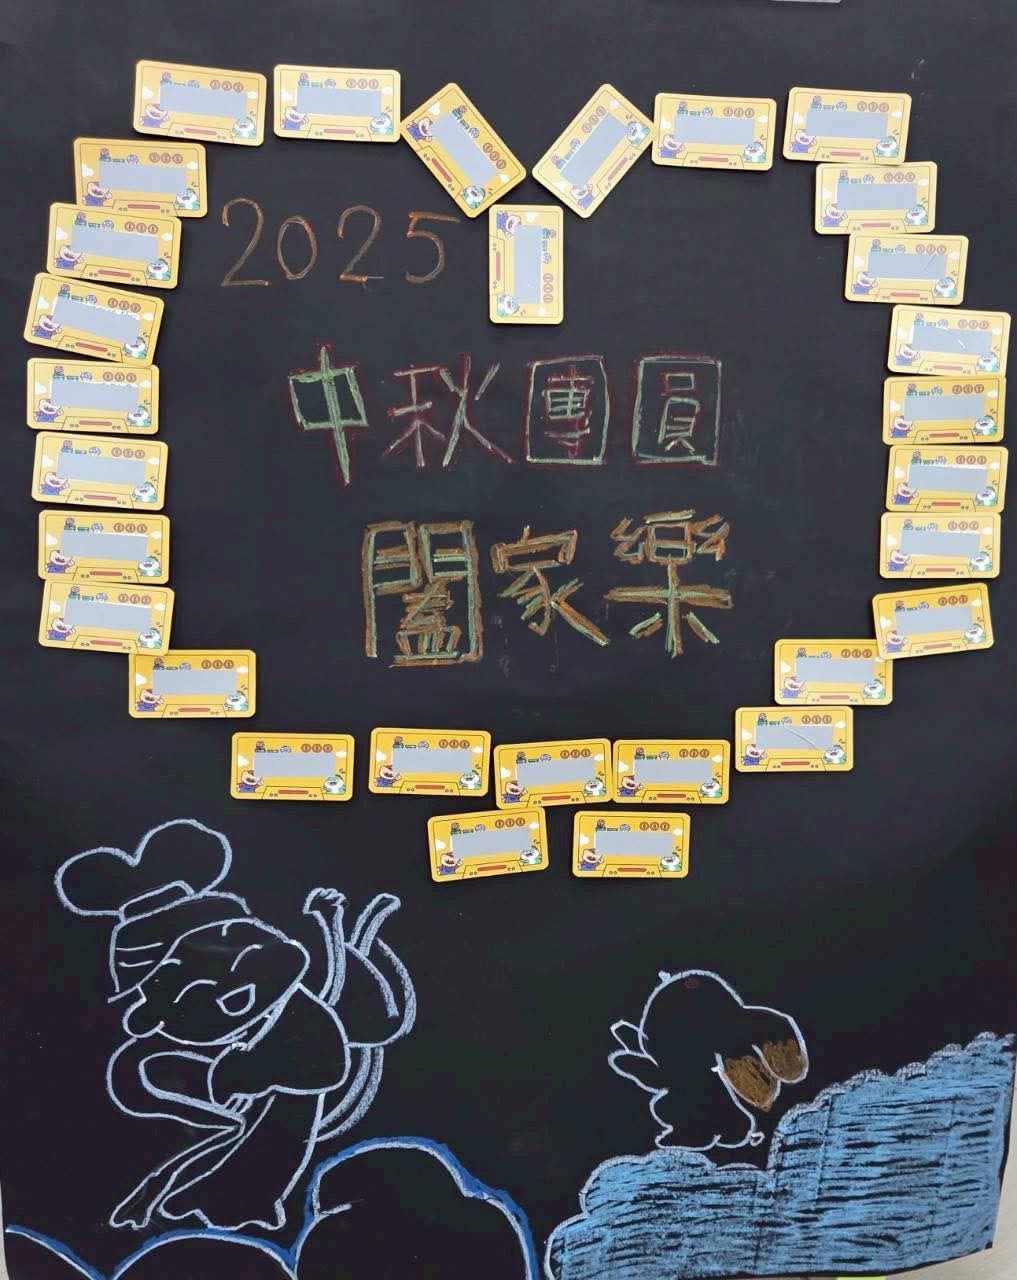 2025
中秋團圓
闔家樂